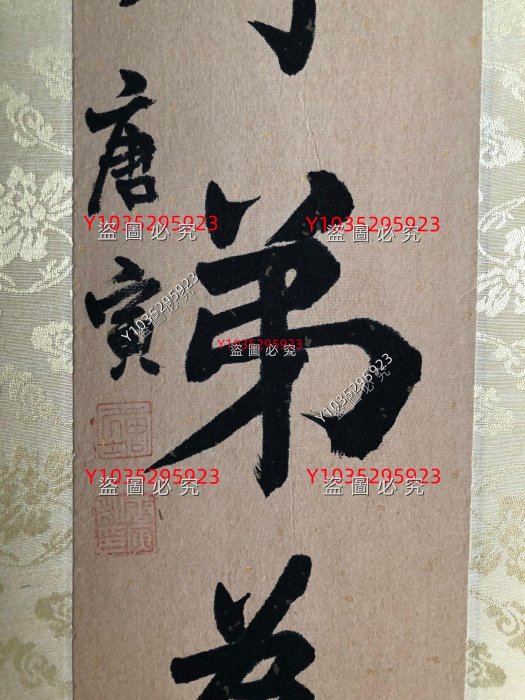 弟
唐寅
Y1035295923
盜圖必究
Y1035295923
盜圖必究
Y1035295923
盜圖必究
Y1035295923
盜圖必究
Y1035295923
盜圖必究
Y1035295923
盜圖必究
Y1035295923
盜圖必究